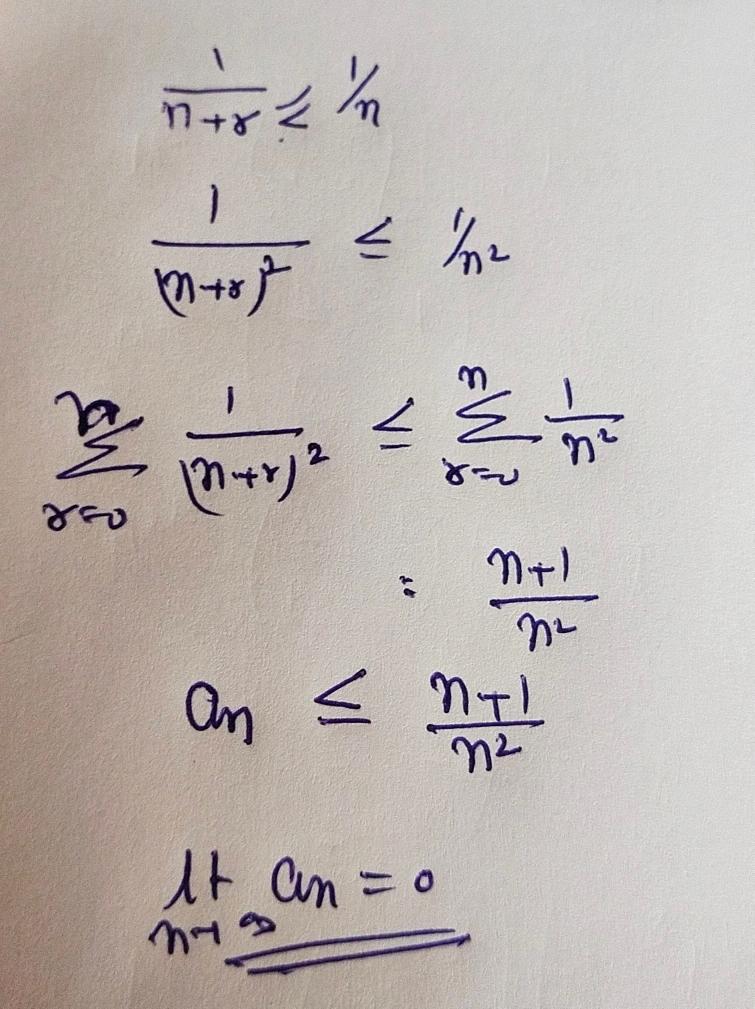 1/(n+r) ≤ 1/n
1/(n+r)² ≤ 1/n²
∑_{r=0}^{n} 1/(n+r)² ≤ ∑_{r=0}^{n} 1/n²
= (n+1)/n²
an ≤ (n+1)/n²
lt_{n→∞} an = 0